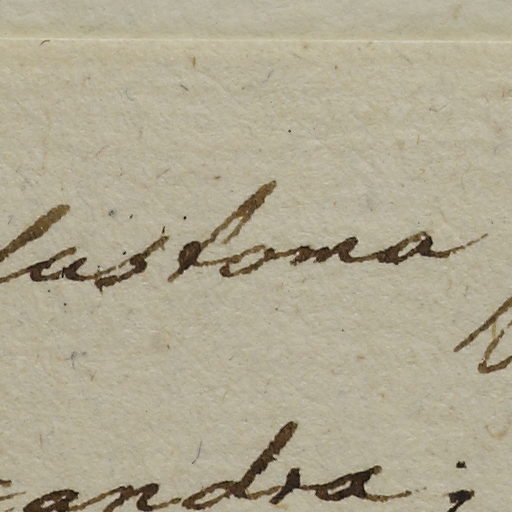 lastoma
andra;